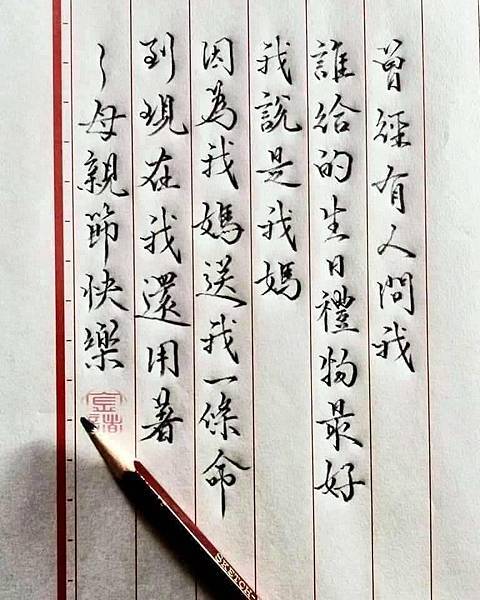 曾經有人問我
誰給的生日禮物最好
我說是我媽
因為我媽送我一條命
到現在我還用著
～母親節快樂
SKETCH